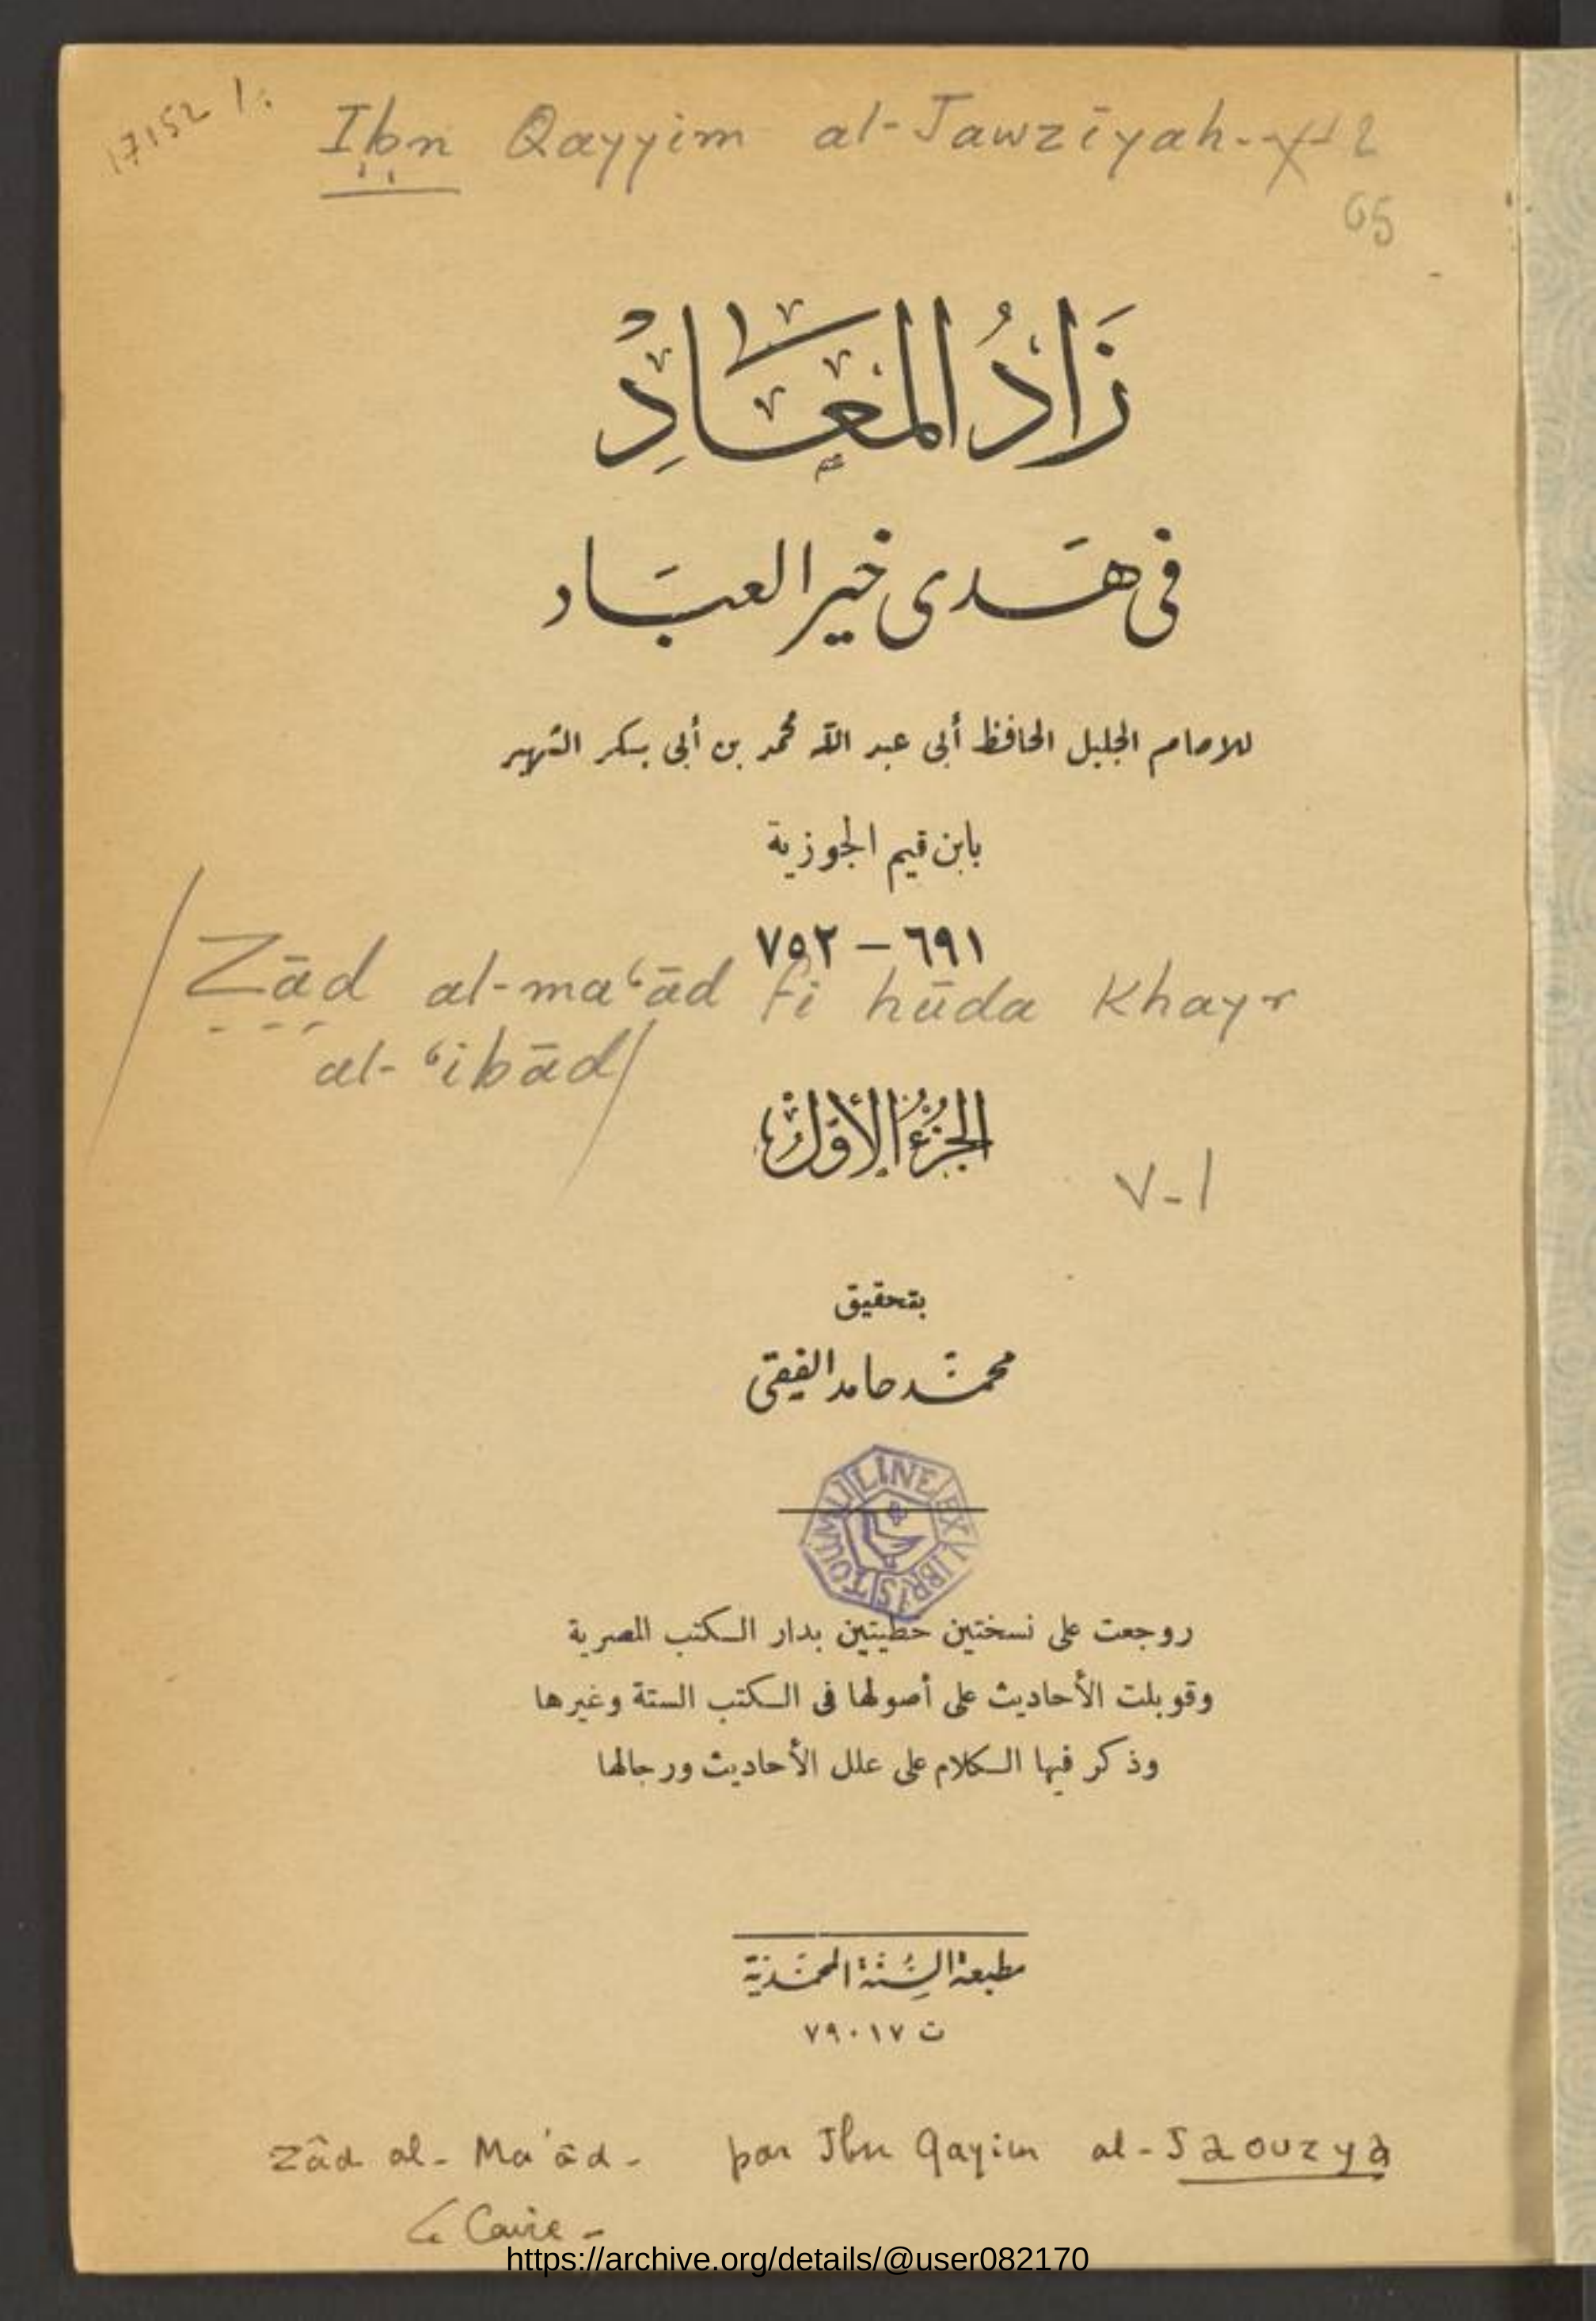 17152
Ibn Qayyim al-Jawzīyah
65
زَادُ المَعَادِ
فى هَدى خير العبَاد
للامام الجليل الحافظ أبى عبد الله محمد بن أبى بكر الشهير
بابن قيم الجوزية
٦٩١ – ٧٥٢
Zād al-maʿād fi hūda Khayr
al-ʿibād
الجزءُ الأوّل
V-1
بتحقيق
محمّد حامد الفيقى
LINE EX LIBRIS TOUMI
روجعت على نسختين خطيتين بدار الكتب المصرية
وقوبلت الأحاديث على أصولها فى الكتب الستة وغيرها
وذكر فيها الكلام على علل الأحاديث ورجالها
مطبعة السُّنّة المحمّديّة
ت ٧٩٠١٧
Zâd al-Ma'ād - par Ibn Qayim al-Jaouzya
Le Caire -
https://archive.org/details/@user082170